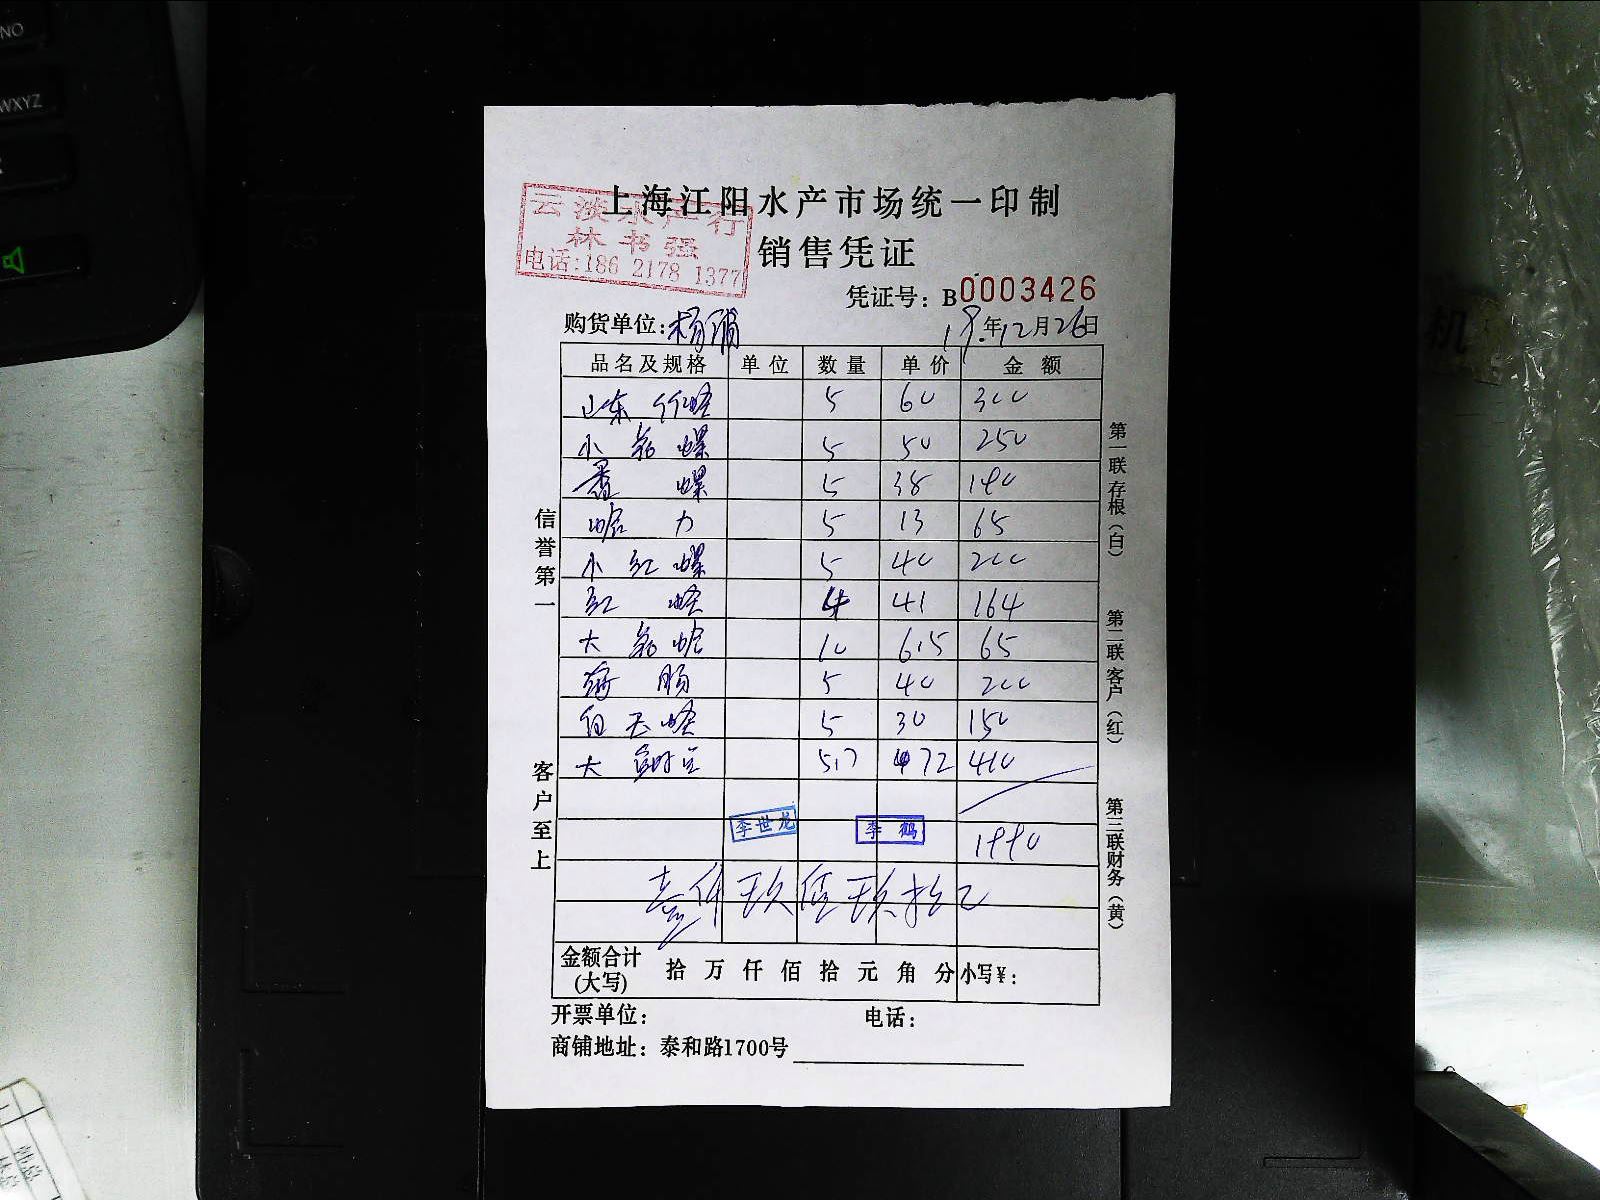 NO
WXYZ
上海江阳水产市场统一印制
云淡水产行
林书强
电话:186 2178 1377
销售凭证
凭证号: B0003426
购货单位: 杨浦 19年12月26日
品名及规格 单位 数量 单价 金额
山东竹蛏 5 60 300
小花螺 5 50 250
香螺 5 38 190
蛤力 5 13 65
小红螺 5 40 200
红蛏 4 41 164
大花蛤 10 6.5 65
5 40 200
白玉蛏 5 30 150
大 5.7 72 410
李世龙 李鹤
1990
壹仟玖佰玖拾元
金额合计(大写) 拾 万 仟 佰 拾 元 角 分 小写¥:
开票单位: 电话:
商铺地址: 泰和路1700号
信誉第一
客户至上
第一联存根(白)
第二联客户(红)
第三联财务(黄)